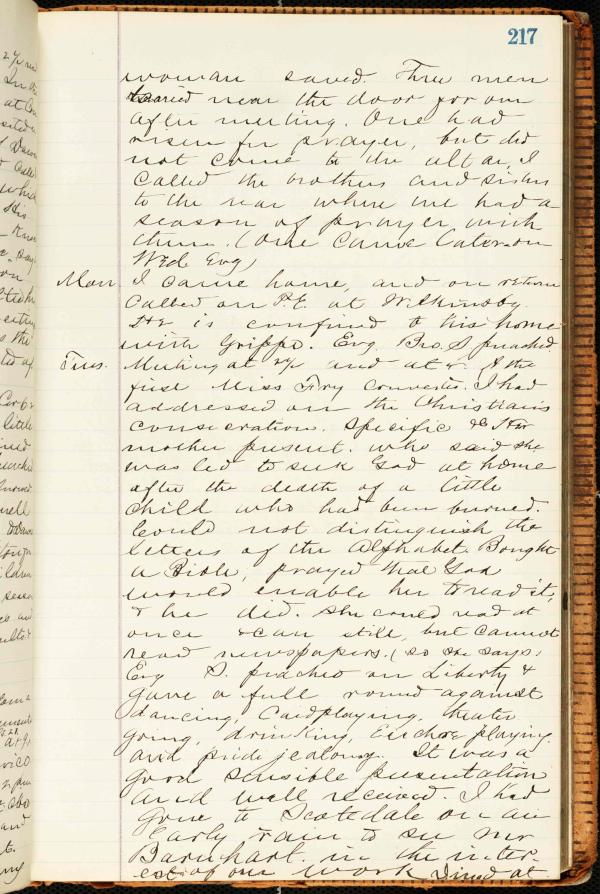 217
woman saved. Three men
tarried near the door for our
after meeting. One had
risen for prayer, but did
not come to the altar, I
called the brothers and sisters
to the rear where we had a
season of prayer with
them. (One came later on
Wed Evg)
Mon. I came home, and on return
called on P.E. at Wilkinsbg.
He is confined to his home
with Grippe. Evg Bro. S preached.
Tues. Meeting at 2½ and at the
first Miss Fry converted. I had
addressed on the Christian's
consecration. Specific &c Her
mother present. who said she
was led to seek God at home
after the death of a little
child who had been burned.
Could not distinguish the
letters of the Alphabet. Bought
a Bible, prayed that God
would enable her to read it,
& he did. She could read at
once & can still, but cannot
read newspapers. (so she says)
Evg S. preached on Liberty &
gave a full round against
dancing, Cardplaying, theater
going, drinking, Euchre playing
and pride jealousy. It was a
good sensible presentation
and well received I had
gone to Scotsdale on an
early train to see Mr
Barnhart. in the inter-
est of our work Dined at